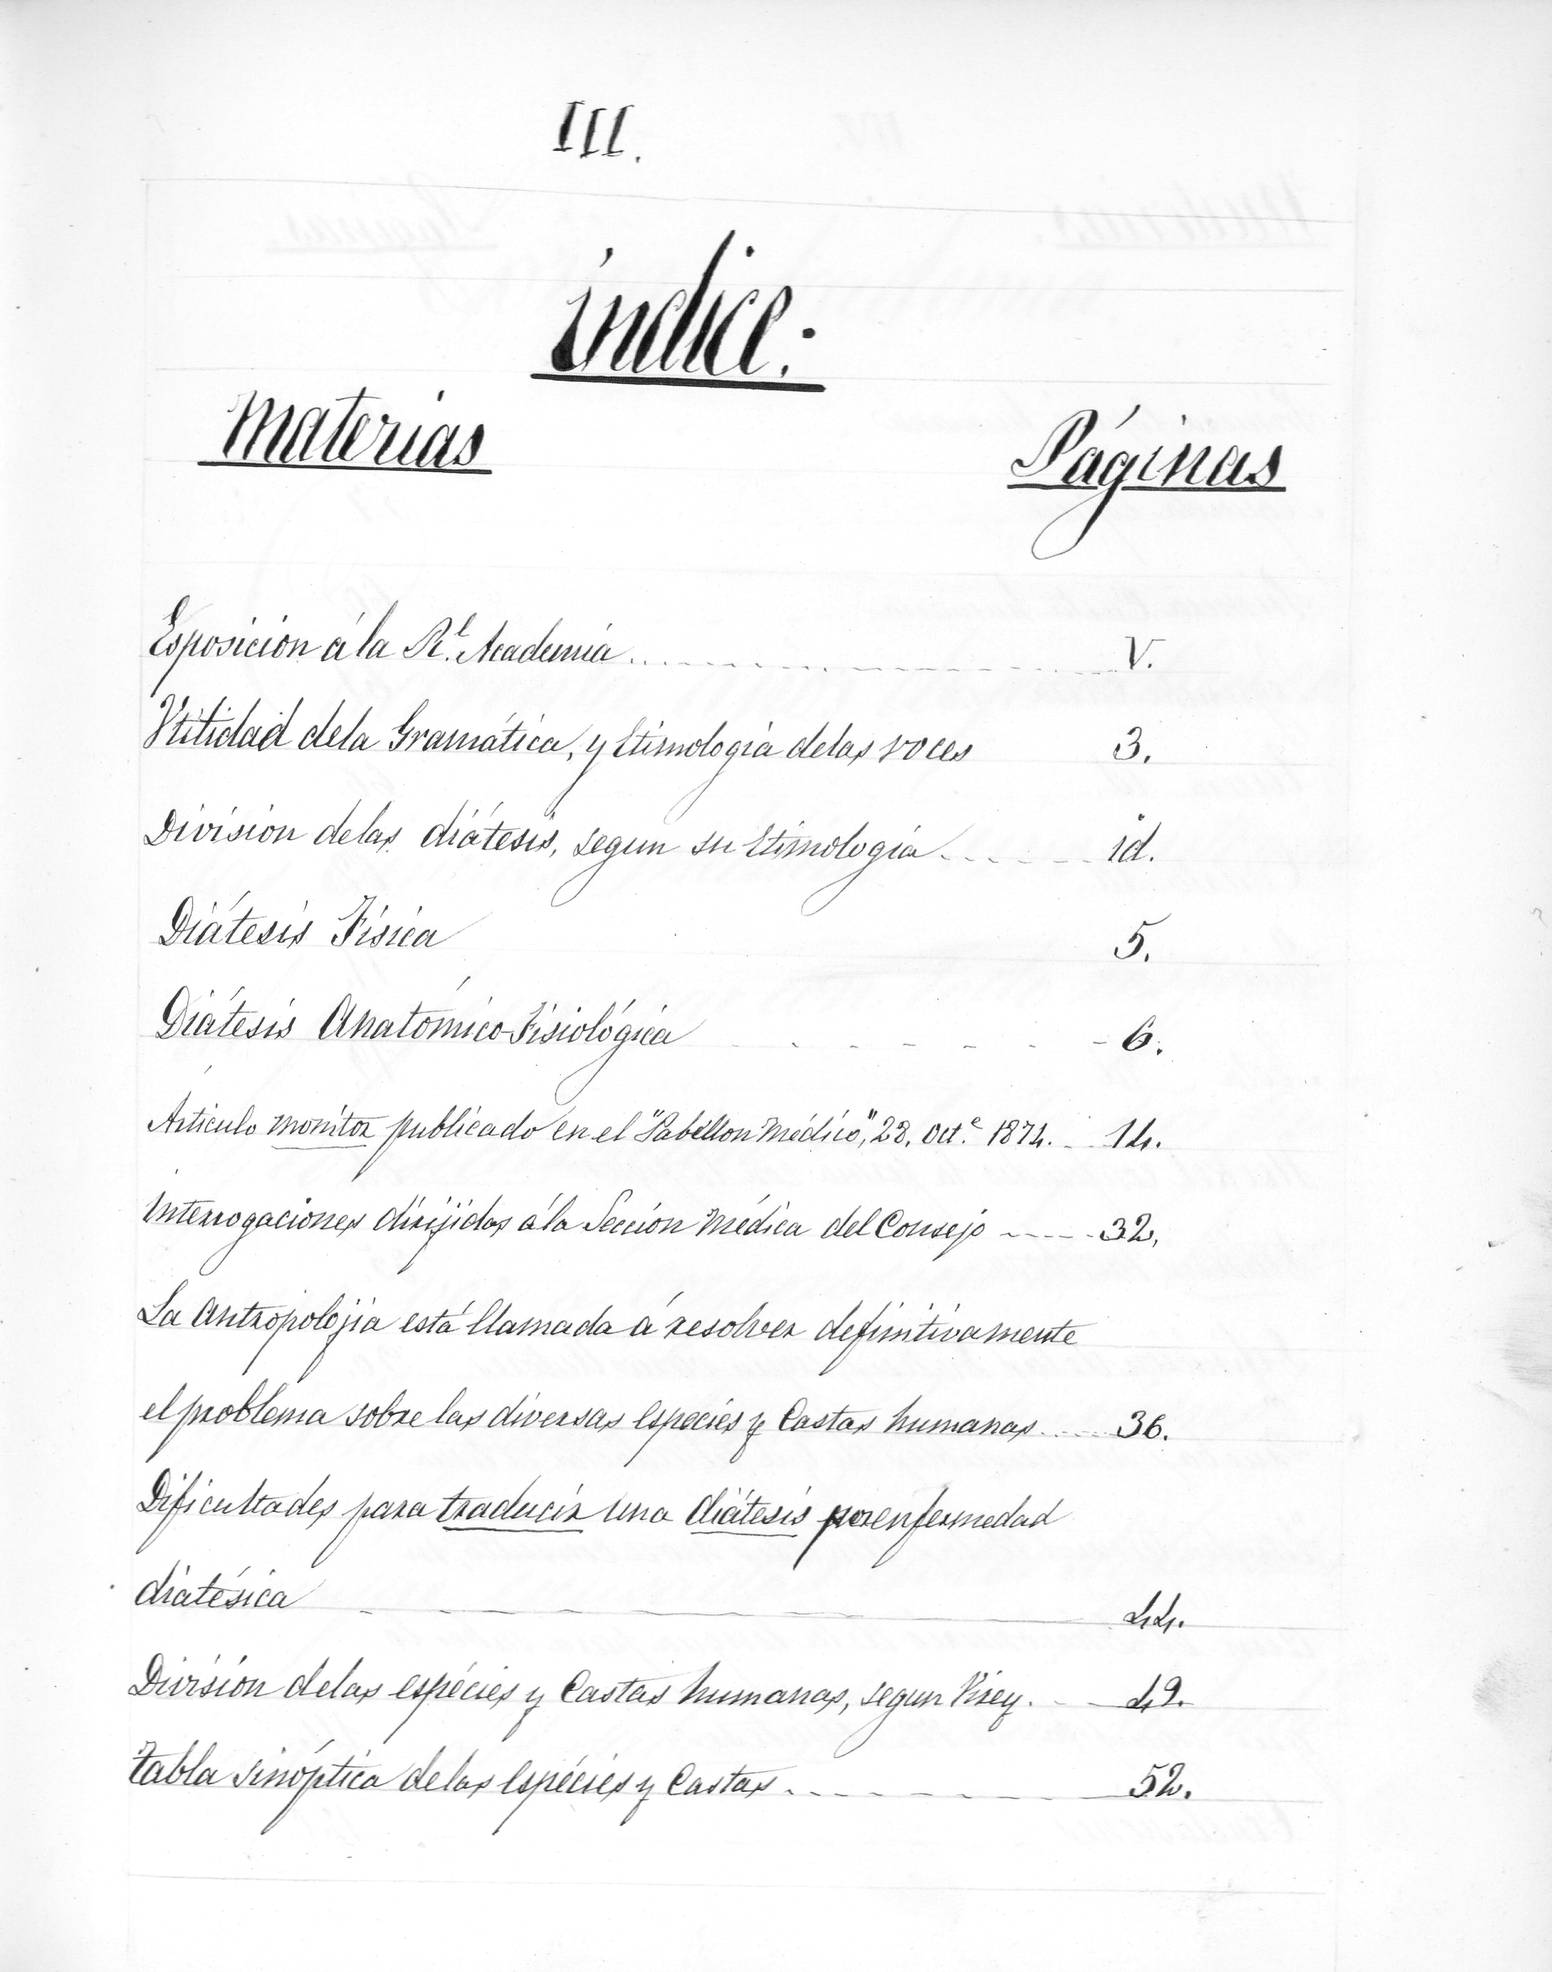 III.
índice:
Materias Páginas
Esposicion á la Rl. Academia V.
Utilidad dela Gramática, y Etimología delas voces 3.
División delas diátesis, segun su Etimología id.
Diátesis Física 5.
Diátesis Anatómico-Fisiológica 6.
Artículo monitor publicado en el "Pabellon Médico", 28, Octe. 1874. 14.
interrogaciones dirijidas á la Sección Médica del Consejo 32.
La Antropolojia está llamada á resolver definitivamente
el problema sobre las diversas especies y Castas humanas 36.
Dificultades para traducir una diátesis por enfermedad
diatésica 44.
División delas espécies y Castas humanas, segun Virey. 49.
tabla sinóptica delas Espécies y Castas 52.